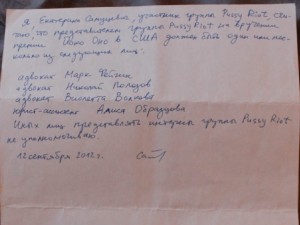 Я, Екатерина Самуцевич, участница группы Pussy Riot, счи-
таю, что представителем группы Pussy Riot на вручении
премии Йоко Оно в США должен быть один или нес-
колько из следующих лиц:
адвокат Марк Фейгин
адвокат Николай Полозов
адвокат Виолетта Волкова
Алиса Образцова
Иных лиц представлять интересы группы Pussy Riot
не уполномочиваю.
12 сентября 2012г.